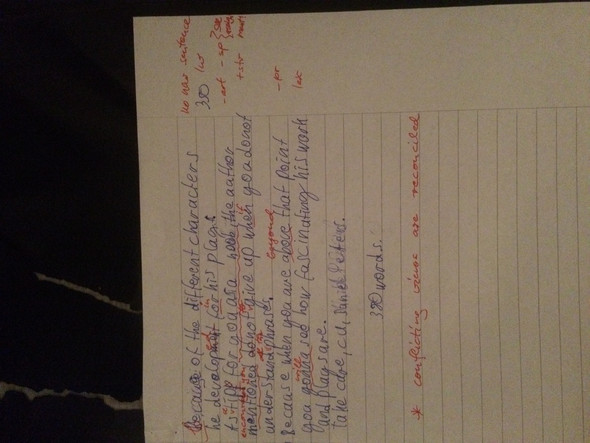 because of the different characters
he development for his plays
+stripp for you as a noob, the author
mentioned do not give up when you do not
understand phrases
Because when you are above that point
you gonna see how fascinating his work
and plays are.
Take care, c.u,
320 words.
no new sentence
320
lw
-art
-up
+str
-pr
lex
in
if
beyond
will
* conflicting views are reconciled